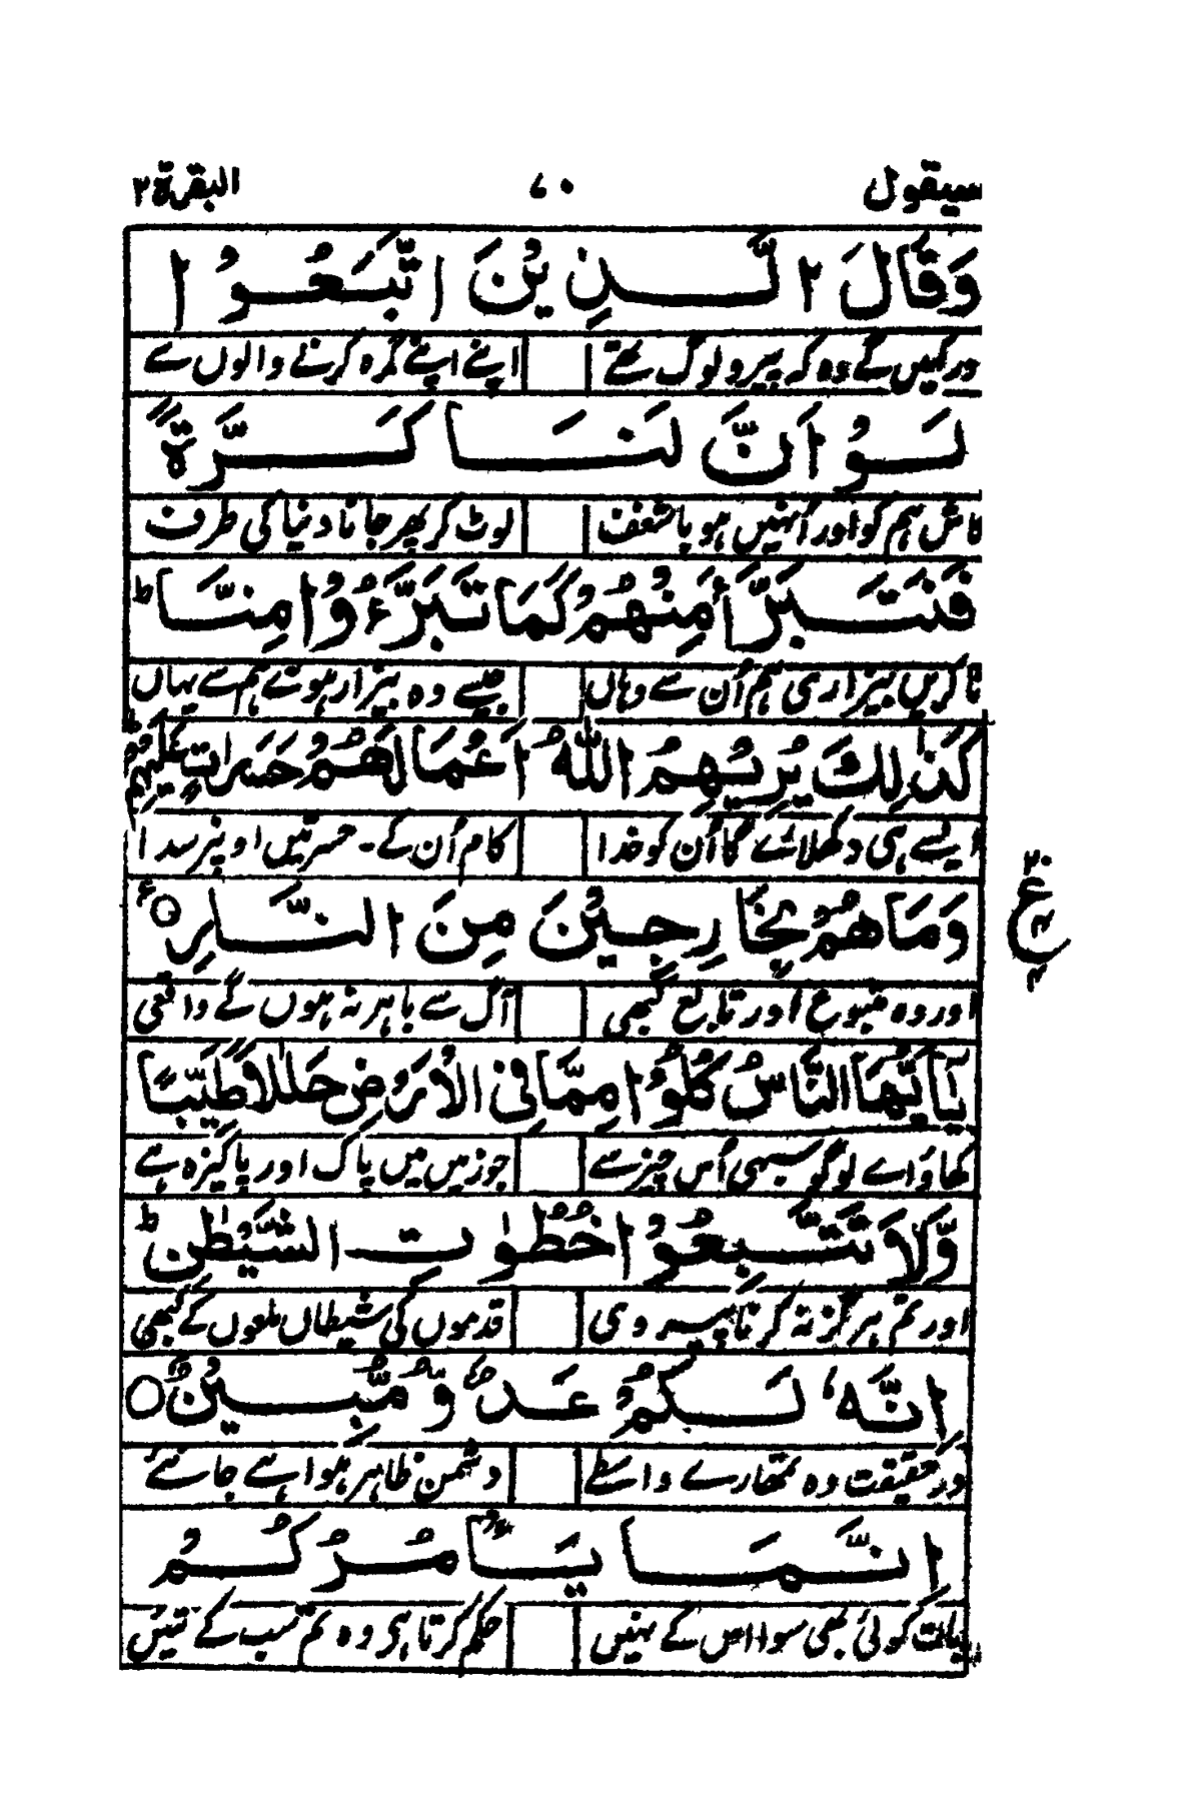 سیقول ۷۰ البقرة ۲
وَقَالَ الَّذِيْنَ اتَّبَعُوْا
اور کہیں گے وہ کہ پیرو لوگ تھے اپنے اپنے گمرہ کرنے والوں سے
لَوْ اَنَّ لَنَا كَرَّةً
کاش ہم کو اور اُنہیں ہو با شغف لوٹ کر پھر جانا دنیا کی طرف
فَنَتَبَرَّاَ مِنْهُمْ كَمَا تَبَرَّءُوْا مِنَّا ط
تا کریں بیزاری ہم اُن سے وہاں جیسے وہ بیزار ہوئے ہم سے یہاں
كَذٰلِكَ يُرِيْهِمُ اللّٰهُ اَعْمَالَهُمْ حَسَرٰتٍ عَلَيْهِمْ ط
ایسے ہی دکھلائے گا اُن کو خدا کام اُن کے۔ حسرتیں او پر سدا
وَمَا هُمْ بِخَارِجِيْنَ مِنَ النَّارِ ○ ع
۲۰ ع ۴ ۴
اور وہ متبوع اور تابع کبھی آگ سے باہر نہ ہوں گے واقعی
يٰۤاَيُّهَا النَّاسُ كُلُوْا مِمَّا فِى الْاَرْضِ حَلٰلًا طَيِّبًا
کھاؤ اے لوگو سبھی اُس چیز سے جو زمیں میں پاک اور پاکیزہ ہے
وَّلَا تَتَّبِعُوْا خُطُوٰتِ الشَّيْطٰنِ ط
اور تم ہرگز نہ کرنا پیروی قدموں کی شیطاں ملعوں کے کبھی
اِنَّهٗ لَكُمْ عَدُوٌّ مُّبِيْنٌ ○
در حقیقت وہ تمھارے واسطے دشمن ظاہر ہوا ہے جانئے
اِنَّمَا يَاْمُرُكُمْ
بات کوئی بھی سوا اس کے نہیں حکم کرتا ہی وہ تم سب کے تئیں